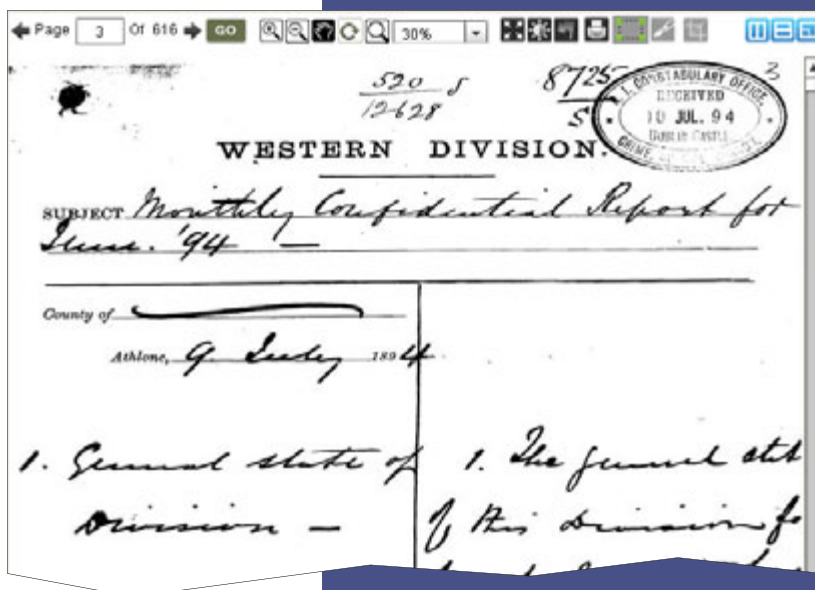 Page 3 Of 616 GO 30%
520 S 8725 3
12628 S
R. I. CONSTABULARY OFFICE,
RECEIVED
10 JUL. 94
DUBLIN CASTLE
CRIME
WESTERN DIVISION.
SUBJECT Monthly Confidential Report for
June. '94 —
County of
Athlone, 9. July 1894
1. General state of 1. The general stat
Division — of this Division fo